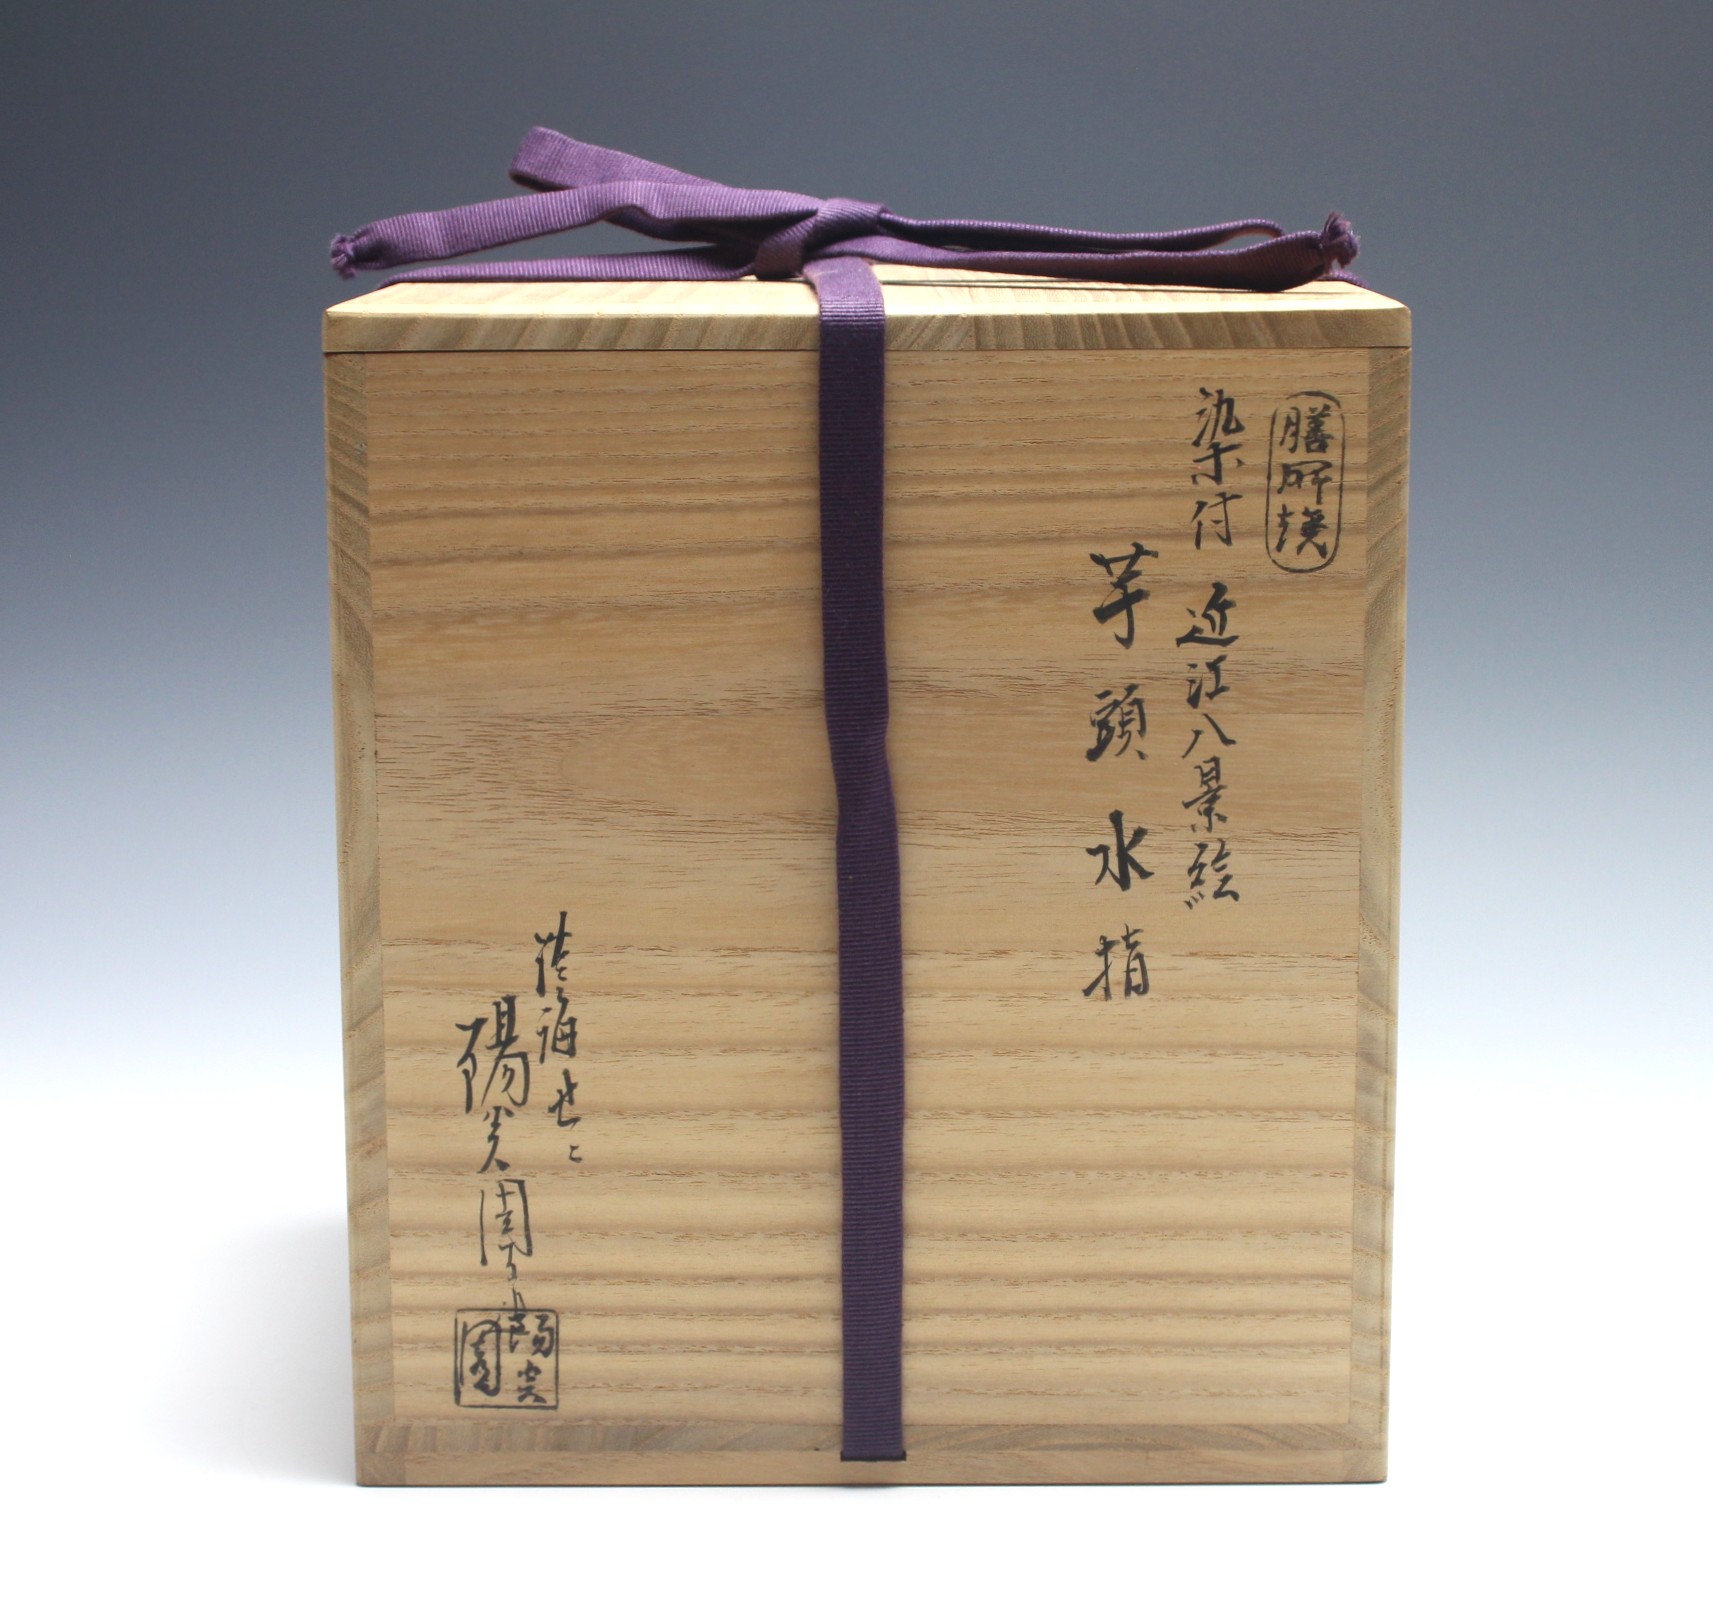 膳所焼
染付 近江八景絵
芋頭 水指
淡海
陽炎園
陽炎園